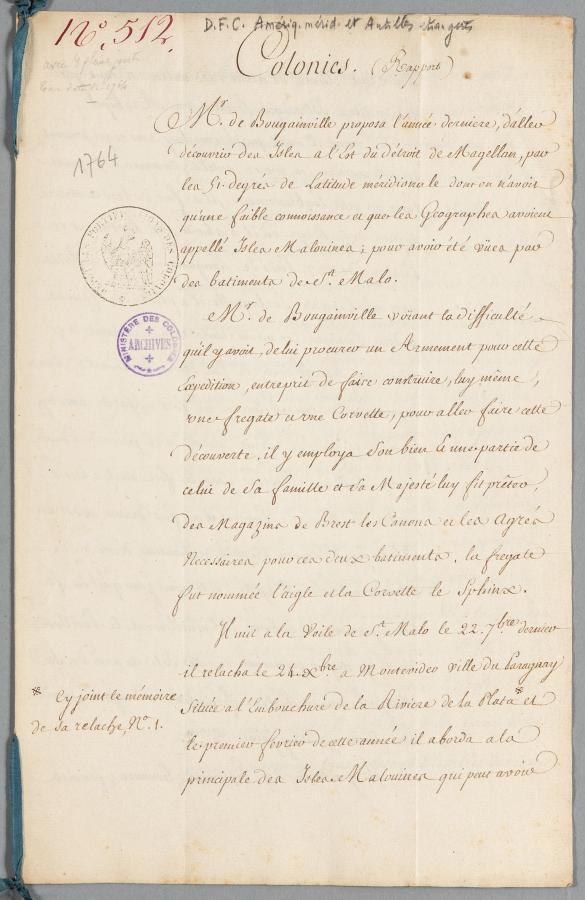 N.º 512.
D.F.C. Amériq. mérid. et Antilles étrangères
Colonies. (Rapport)
1764
Mr. de Bougainville proposa l'année derniere, d'aller
découvrir des Isles a l'Est du détroit de Magellan, par
les 51. degrés de Latitude méridionale dont on n'avoit
qu'une faible connoissance et que les Geographes avoient
appellé Isles Malouines; pour avoir été vües par
des batiments de St. Malo.
Mr. de Bougainville voïant la difficulté
qu'il y avoit, de lui procurer un Armement pour cette
Expédition, entreprit de faire construire, luy même,
une fregate et une Corvette, pour aller faire cette
découverte. il y employa son bien & une partie de
celui de sa famille et sa Majesté luy fit prêter,
des Magazins de Brest les Canons et les Agrés
Necessaires pour ces deux batiments. la fregate
fut nommée l'aigle et la Corvette le Sphinx.
Il mit a la Voile de St. Malo le 22. 7bre dernier
il relacha le 24. xbre a Montevideo ville du Paraguay
Située a l'Embouchure de la Riviere de la Plata* et
le premier fevrier de cette année il aborda a la
principale des Isles Malouines qui peut avoir
* Cy joint le mémoire
de sa relache, No. 1.
MINISTERE DES COLONIES
ARCHIVES